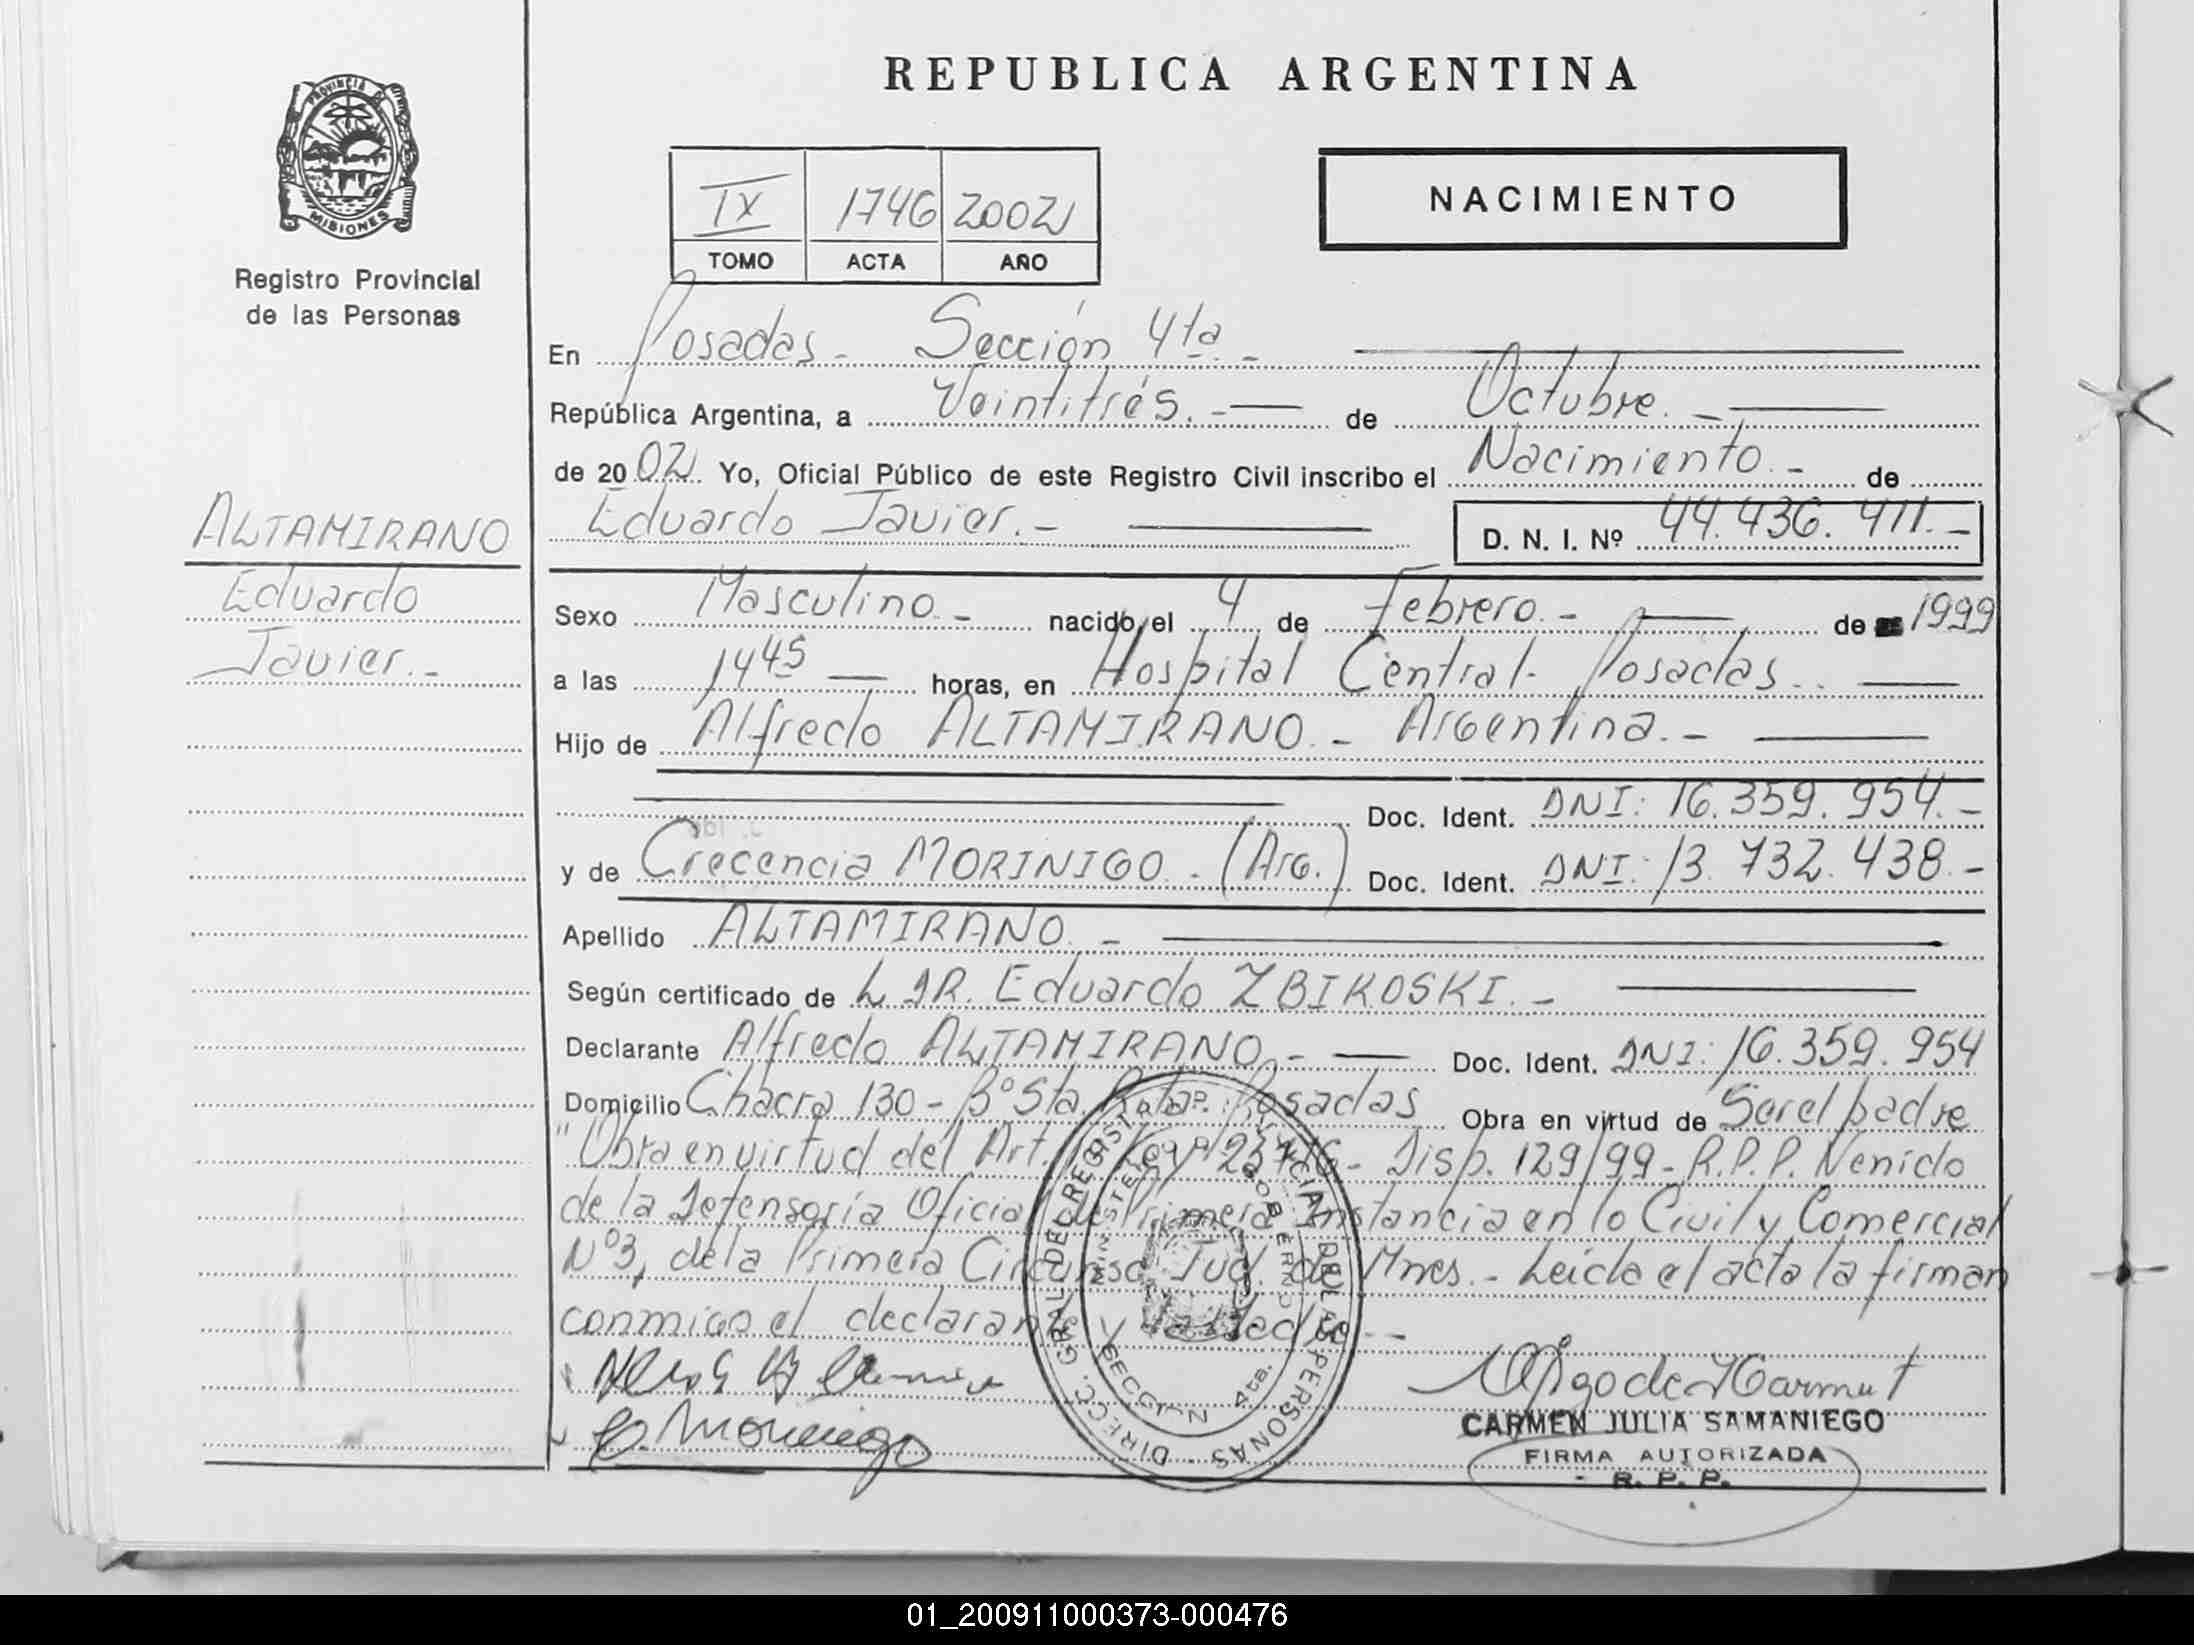 REPUBLICA ARGENTINA
PROVINCIA DE
MISIONES
Registro Provincial
de las Personas
IX 1746 2002
TOMO ACTA AÑO
NACIMIENTO
En Posadas - Sección 4ta. -
República Argentina, a Veintitrés. - de Octubre. -
de 20 02 Yo, Oficial Público de este Registro Civil inscribo el Nacimiento. - de
Eduardo Javier. - D. N. I. Nº 44.436.411. -
ALTAMIRANO
Eduardo
Javier. -
Sexo Masculino. - nacido el 4 de Febrero. - de 1999
a las 14 45 horas, en Hospital Central - Posadas. -
Hijo de Alfredo ALTAMIRANO. - Argentina. -
Doc. Ident. DNI: 16.359.954. -
y de Crecencia MORINIGO - (Arg.) Doc. Ident. DNI: 13.732.438. -
Apellido ALTAMIRANO. -
Según certificado de L DR. Eduardo ZBIKOSKI. -
Declarante Alfredo ALTAMIRANO. - Doc. Ident. DNI: 16.359.954
Domicilio Chacra 130 - Bº Sta. Rita - Posadas Obra en virtud de Ser el padre
"Obra en virtud del Art. Ley Disp. 129/99 - R.P.P. Venido
de la Defensoría Oficial de Primera Instancia en lo Civil y Comercial
Nº3, de la Primera Circunsc. Jud. de Mnes. - Leída el acta la firman
conmigo el declarante y
C. Morinigo
DIRECC. GRAL. DEL REGIST. PROVINCIAL DE LAS PERSONAS
MINISTERIO GOBIERNO
SECCION 4ta.
CARMEN JULIA SAMANIEGO
FIRMA AUTORIZADA
R. P. P.
01_200911000373-000476